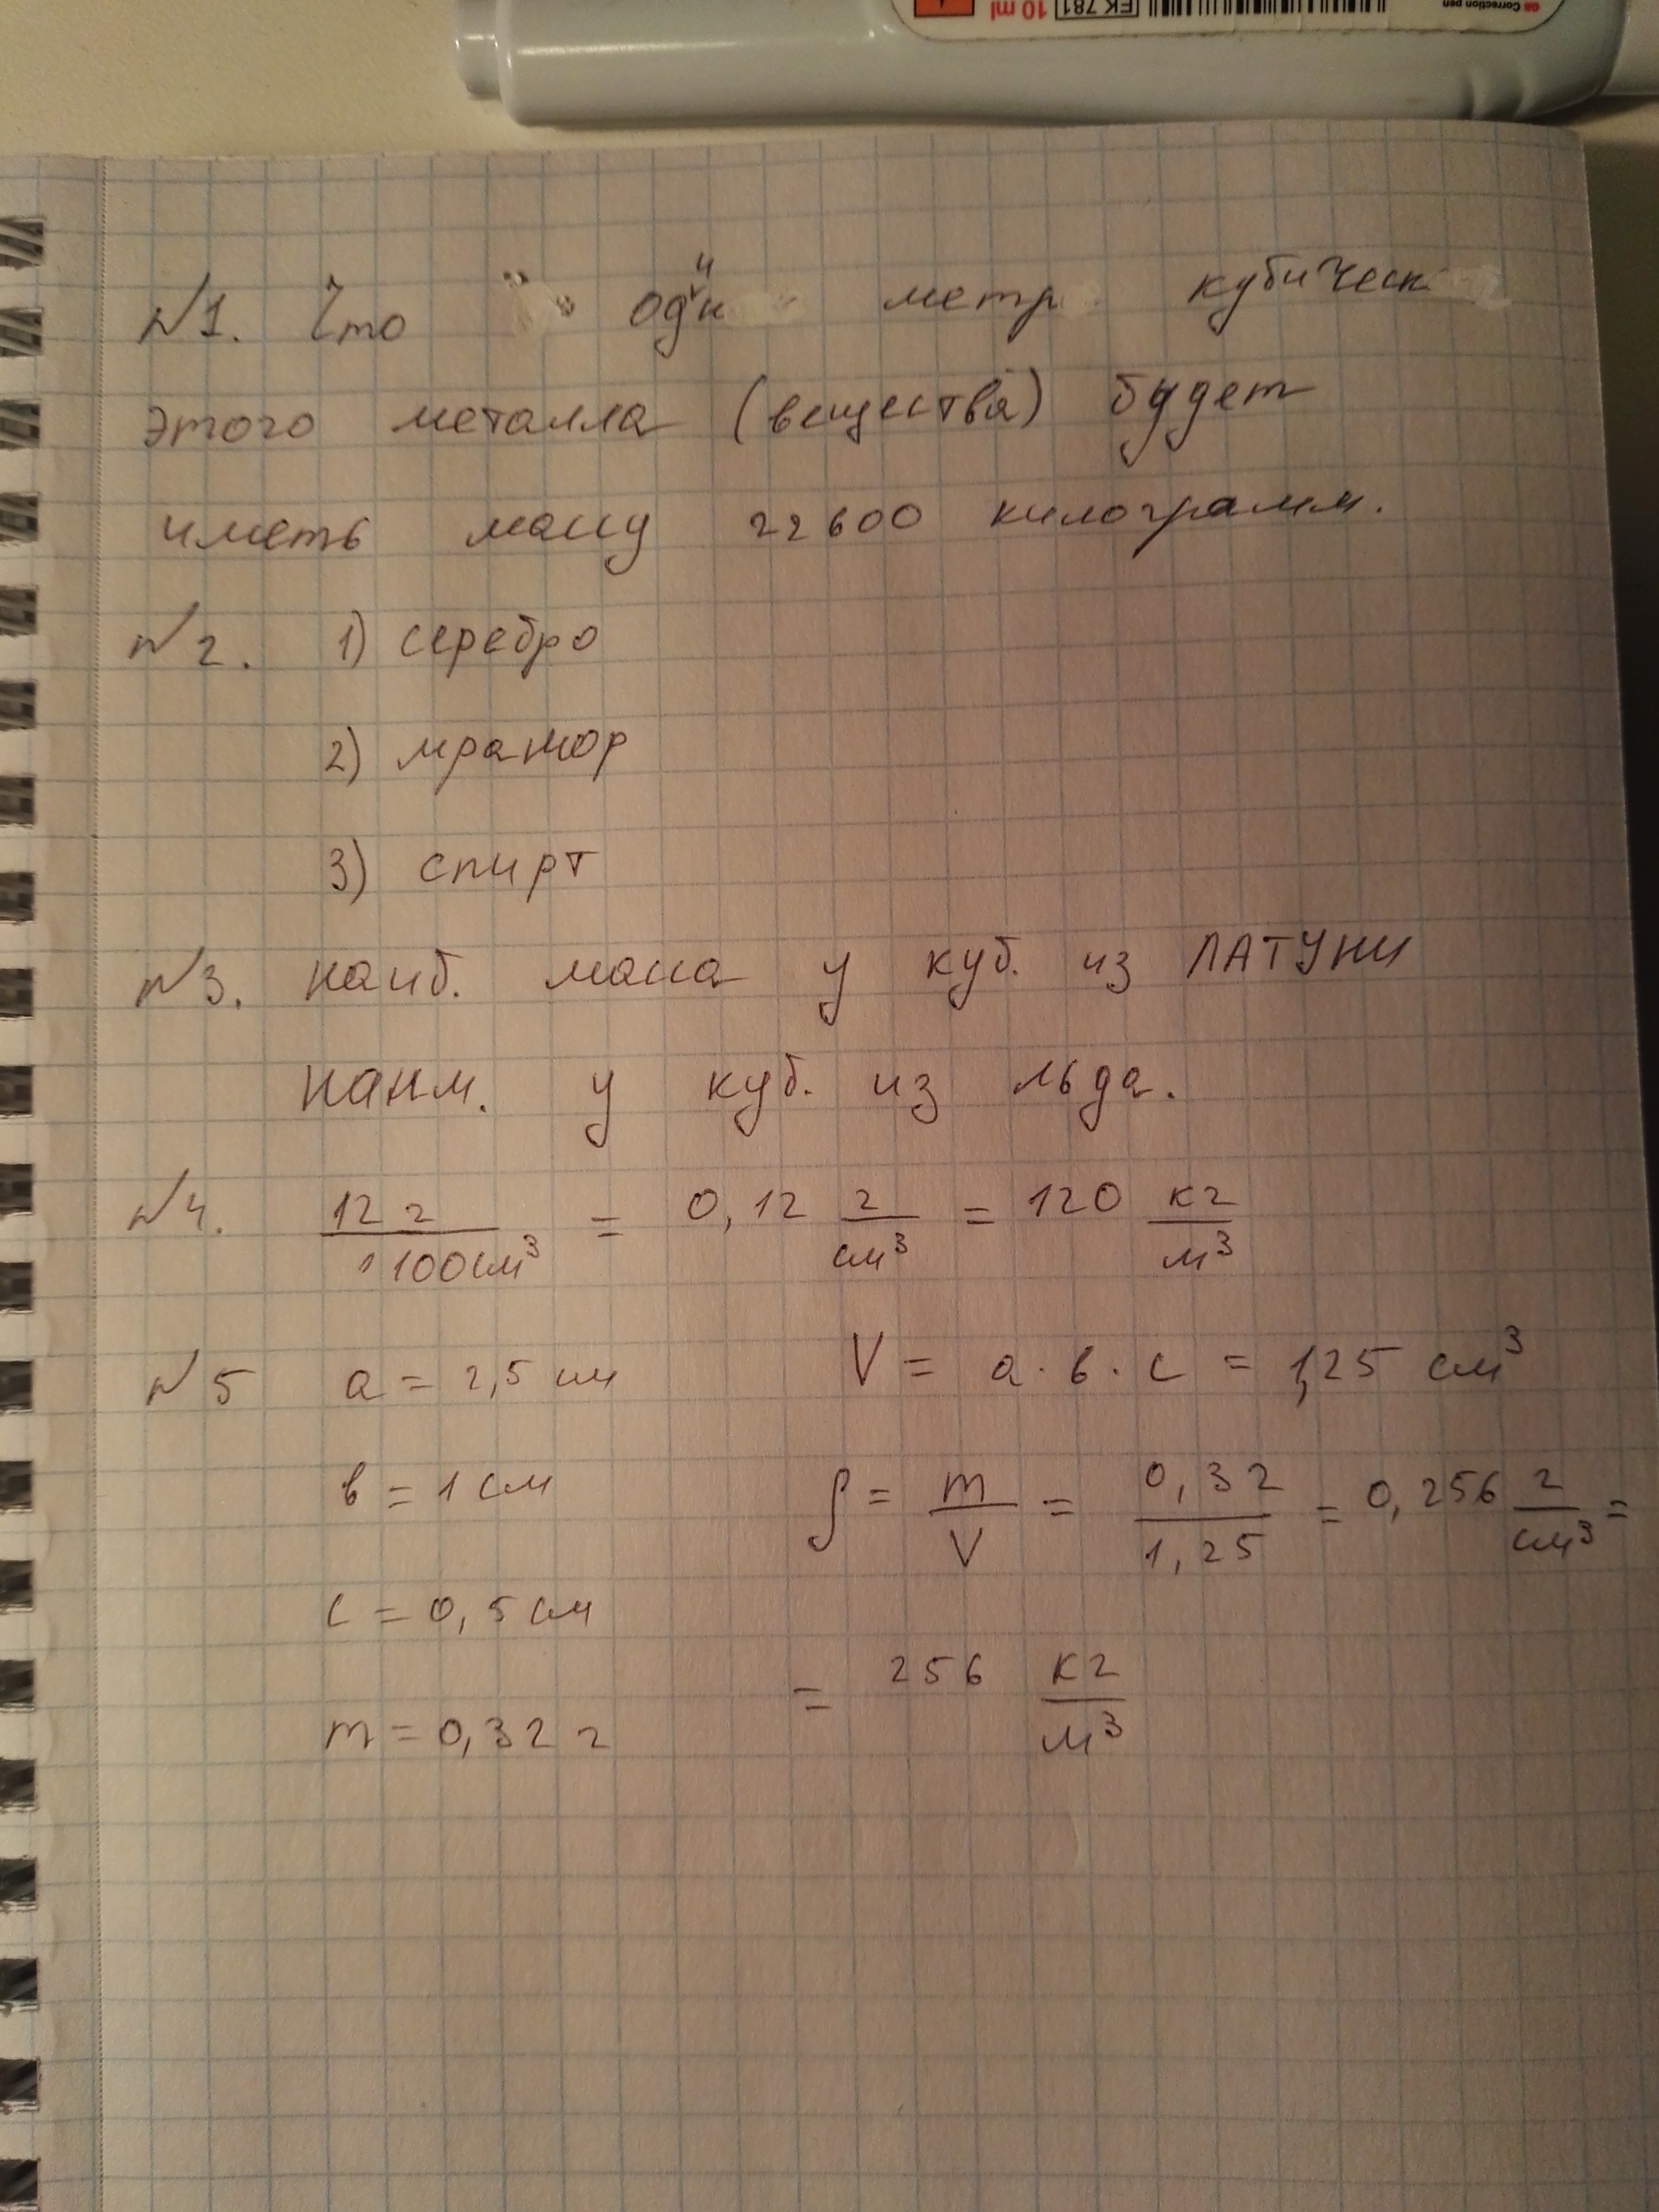 10 ml
EK 781
Correction pen
№1. Что один метр кубическ
этого металла (вещества) будет
иметь массу 22600 килограмм.
№2. 1) серебро
2) мрамор
3) спирт
№3. наиб. масса у куб. из ЛАТУНИ
наим. у куб. из льда.
№4. 12 г / 100 см³ = 0,12 г/см³ = 120 кг/м³
№5 a = 2,5 см V = a · b · c = 1,25 см³
b = 1 см ρ = m/V = 0,32/1,25 = 0,256 г/см³ =
c = 0,5 см
= 256 кг/м³
m = 0,32 г